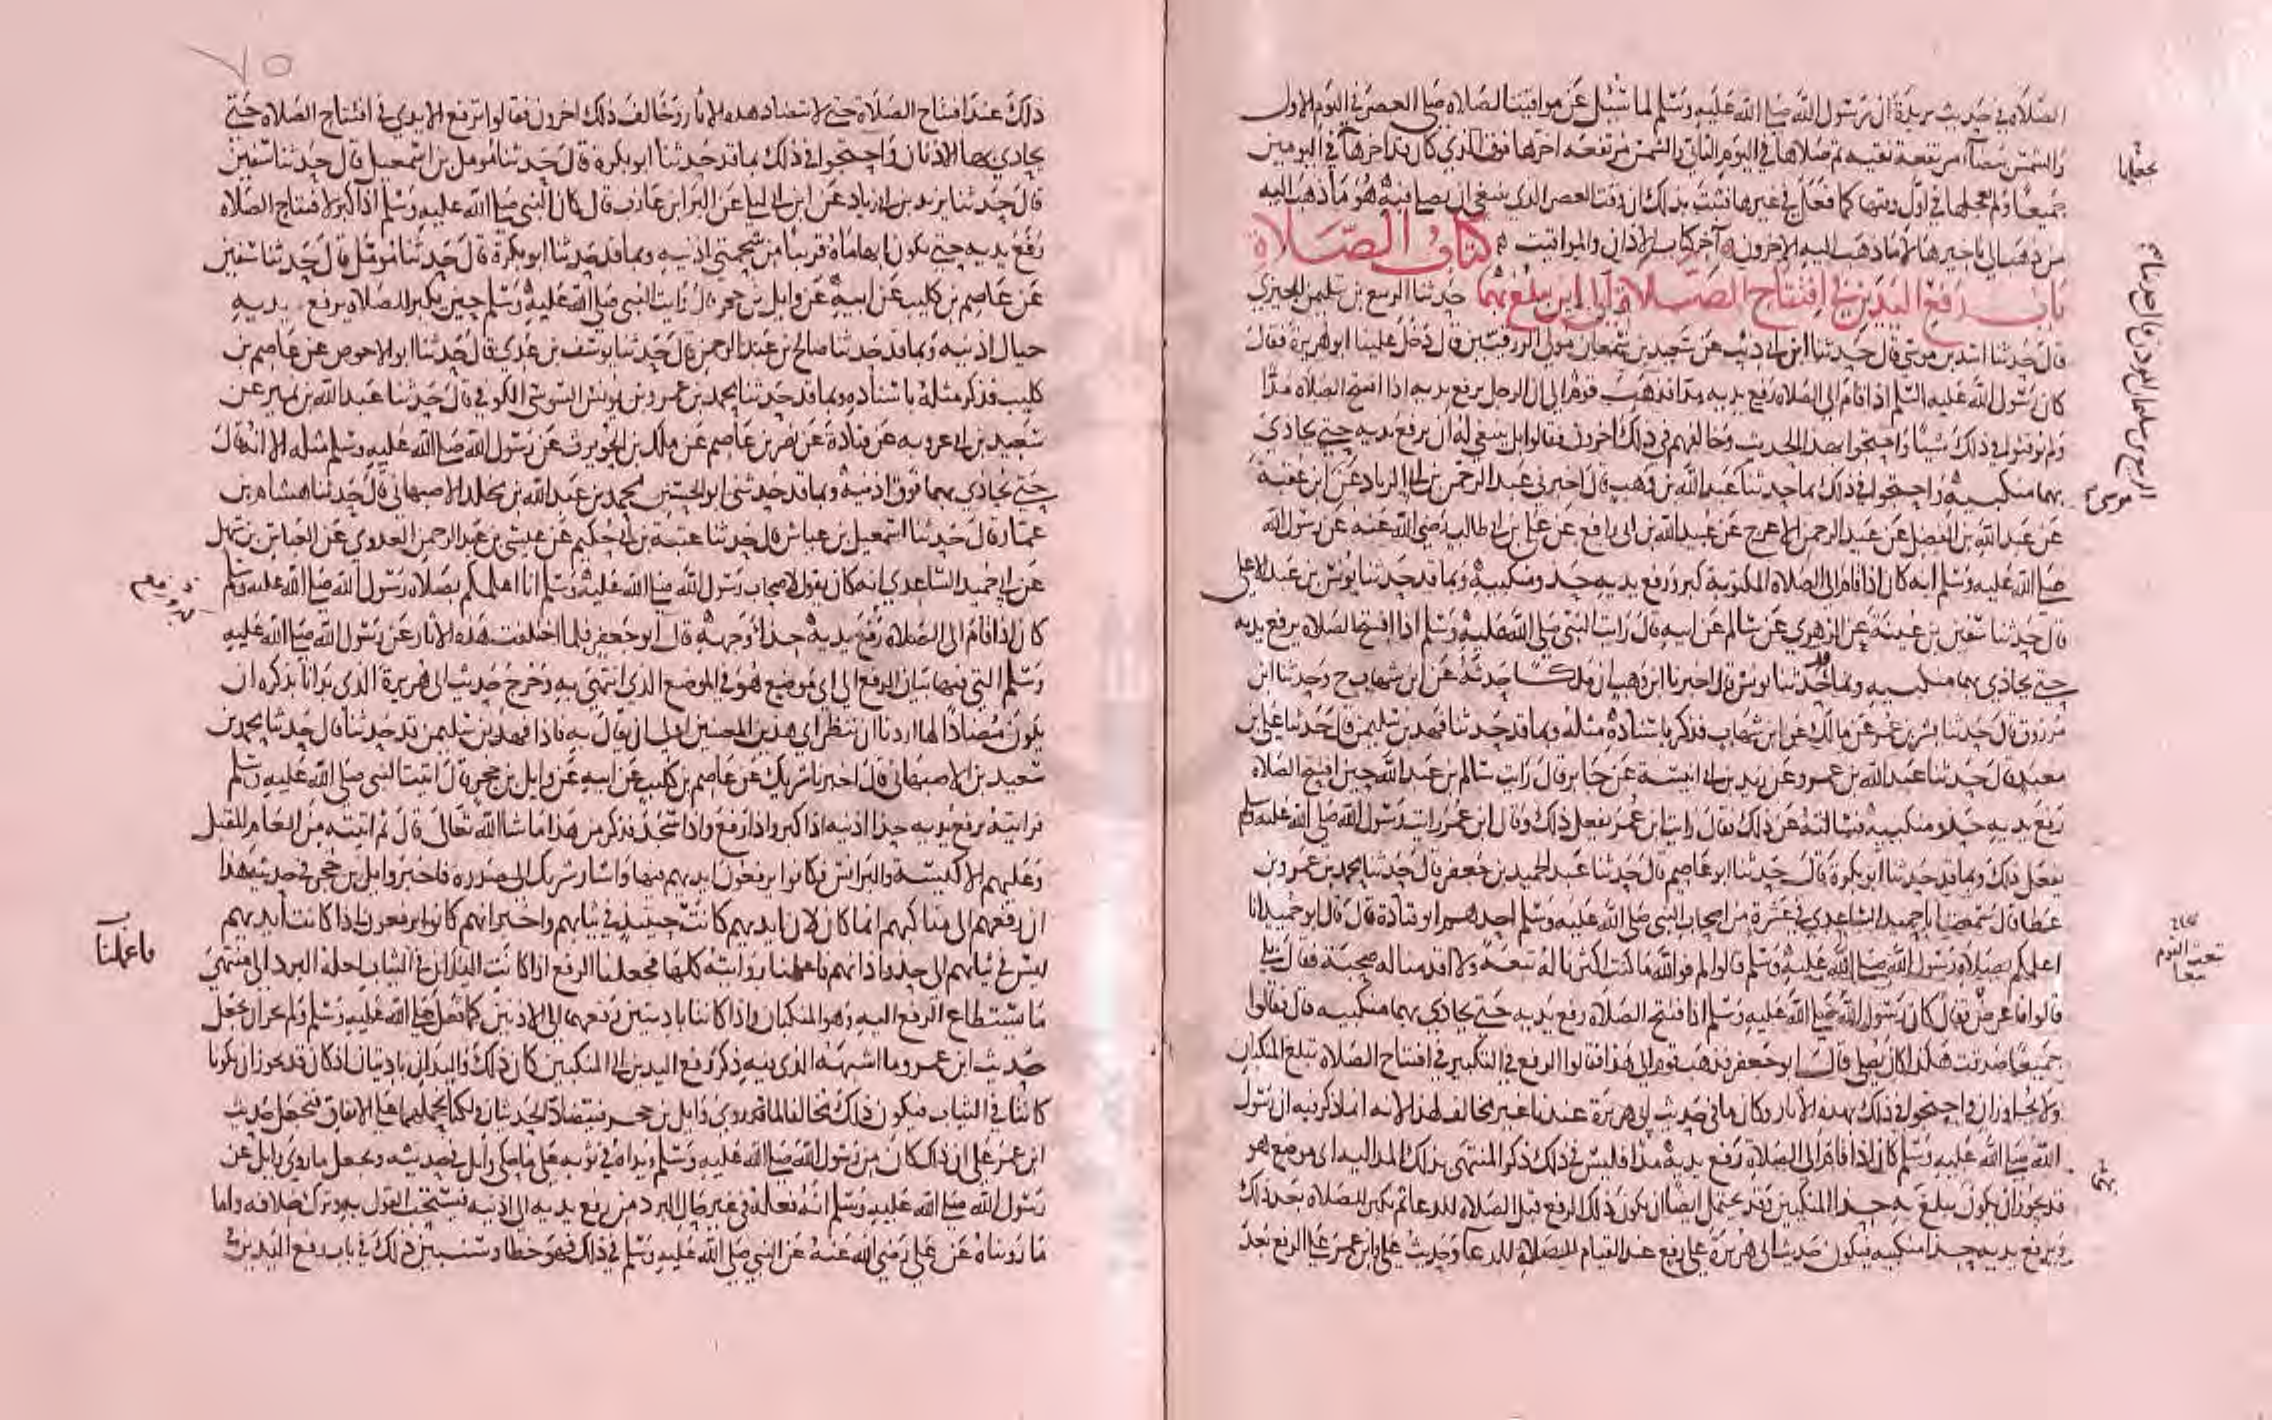 الصلاة في حديث بريدة ان رسول الله صلى الله عليه وسلم لما سئل عن مواقيت الصلاة صلى العصر في اليوم الاول
والشمس بيضآء مرتفعة نقيه ثم صلاها في اليوم الثاني والشمس مرتفعه اخرها فوق الذي كان قد اخرها في اليومين
جميعا ولم يعجلها في اول وقتها كما فعل في غيرها فثبت بذلك ان وقت العصر الذي ينبغي ان يصلى فيه هو ما ذهب اليه
من ذهب الى تاخيرها لا ما ذهب اليه الاخرون آخر كتاب الاذان والمواقيت كتاب الصلاة
باب رفع اليدين في افتتاح الصلاة الى اين يبلغ بهما حدثنا الربيع بن سليمن الجيزي
قال حدثنا اسد بن موسى قال حدثنا ابن ابي ذيب عن سعيد بن سمعان مولى الزرقيين قال دخل علينا ابو هريرة فقال
كان رسول الله عليه السلم اذا قام الى الصلاة رفع يديه مدا فذهب قوم الى ان الرجل يرفع يديه اذا افتتح الصلاة مدا
ولم يوقتوا في ذلك شيئا واحتجوا بهذا الحديث وخالفهم في ذلك اخرون فقالوا بل ينبغي له ان يرفع يديه حتى يحاذي
بهما منكبيه واحتجوا في ذلك بما حدثنا عبد الله بن وهب قال اخبرني عبد الرحمن بن ابي الزناد عن ابن عقبة
عن عبد الله بن الفضل عن عبد الرحمن الاعرج عن عبيد الله بن ابي رافع عن علي بن ابي طالب رضي الله عنه عن رسول الله
صلى الله عليه وسلم انه كان اذا قام الى الصلاة المكتوبة كبر ورفع يديه حذو منكبيه وبما قد حدثنا يونس بن عبد الاعلى
قال حدثنا سفين بن عيينة عن الزهري عن سالم عن ابيه قال رايت النبي صلى الله عليه وسلم اذا افتتح الصلاة يرفع يديه
حتى يحاذي بهما منكبيه وبما قد حدثنا يونس قال اخبرنا ابن وهب ان ملكا حدثه عن ابن شهاب ح وحدثنا ابن
مرزوق قال حدثنا بشر بن عمر عن مالك عن ابن شهاب فذكر باسناده مثله وبما قد حدثنا فهد بن سليمن قال حدثنا علي بن
معبد قال حدثنا عبد الله بن عمرو عن زيد بن ابي انيسة عن جابر قال رايت سالم بن عبد الله حين افتتح الصلاة
رفع يديه حذو منكبيه فسالته عن ذلك فقال رايت ابن عمر يفعل ذلك وقال ابن عمر رايت رسول الله صلى الله عليه وسلم
يفعل ذلك وبما قد حدثنا ابو بكرة قال حدثنا ابو عاصم قال حدثنا عبد الحميد بن جعفر قال حدثنا محمد بن عمرو بن
عطا قال سمعت ابا حميد الساعدي في عشرة من اصحاب النبي صلى الله عليه وسلم احدهم ابو قتادة قال قال ابو حميد انا
اعلمكم بصلاة رسول الله صلى الله عليه وسلم قالوا لم فوالله ما كنت اكثرنا له تبعة ولا اقدمنا له صحبة فقال بلى
قالوا فاعرض فقال كان رسول الله صلى الله عليه وسلم اذا افتتح الصلاة رفع يديه حتى يحاذي بهما منكبيه قال فقالوا
جميعا صدقت هكذا كان يصلي قال ابو جعفر فذهب قوم الى هذا فقالوا الرفع في التكبير في افتتاح الصلاة تبلغ المنكبان
ولا يجاوزان واحتجوا في ذلك بهذه الآثار وكان ما في حديث ابي هريرة عندنا غير مخالف لهذا لانه انما ذكر فيه ان رسول
الله صلى الله عليه وسلم كان اذا قام الى الصلاة رفع يديه مدا فليس في ذلك ذكر المنتهى بذلك المد اليه اي موضع هو
قد يجوز ان يكون يبلغ به حذا المنكبين وقد يحتمل ايضا ان يكون ذلك الرفع قبل الصلاة للدعا ثم يكبر للصلاة بعد ذلك
ويرفع يديه حذا منكبيه فيكون حديث ابي هريرة على رفع عند القيام للصلاة للدعآ وحديث علي وابن عمر على الرفع بعد
يجعلها
الربيع بن سليمان المؤذن قال حدثنا
موسى
بهما
٧٥
ذلك عند افتتاح الصلاة حتى لا تتضاد هذه الاثار وخالف ذلك اخرون فقالوا ترفع الايدي في افتتاح الصلاة حتى
يحاذي بها الاذنان واحتجوا في ذلك بما قد حدثنا ابو بكرة قال حدثنا مومل بن اسمعيل قال حدثنا سفين
قال حدثنا يزيد بن ابي زياد عن ابن ابي ليلى عن البرا بن عازب قال كان النبي صلى الله عليه وسلم اذا كبر لافتتاح الصلاة
رفع يديه حتى يكون ابهاماه قريبا من شحمتي اذنيه وبما قد حدثنا ابو بكرة قال حدثنا مومل قال حدثنا سفين
عن عاصم بن كليب عن ابيه عن وايل بن حجر قال رايت النبي صلى الله عليه وسلم حين يكبر للصلاة يرفع يديه
حيال اذنيه وبما قد حدثنا صالح بن عبد الرحمن قال حدثنا يوسف بن عدي قال حدثنا ابو الاحوص عن عاصم بن
كليب فذكر مثله باسناده وبما قد حدثنا محمد بن عمرو بن يونس السوسي الكوفي قال حدثنا عبد الله بن نمير عن
سعيد بن ابي عروبه عن قتادة عن نصر بن عاصم عن ملك بن الحويرث عن رسول الله صلى الله عليه وسلم مثله الا انه قال
حتى يحاذي بهما فوق اذنيه وبما قد حدثني ابو الحسين محمد بن عبد الله بن مخلد الاصبهاني قال حدثنا هشام بن
عمار قال حدثنا اسمعيل بن عياش قال حدثنا عتبة بن ابي حكيم عن عيسى بن عبد الرحمن العدوي عن العباس بن سهل
عن ابي حميد الساعدي انه كان يقول لاصحاب رسول الله صلى الله عليه وسلم انا اعلمكم بصلاة رسول الله صلى الله عليه وسلم
كان اذا قام الى الصلاة رفع يديه حذا وجهه قال ابو جعفر فلما اختلفت هذه الاثار عن رسول الله صلى الله عليه
وسلم التي فيها بيان الرفع الى اي موضع هو في الموضع الذي انتهى به وخرج حديث ابي هريرة الذي بدانا بذكره ان
يكون مضادا لها اردنا ان ننظر اي هذين المعنيين اولى ان يقال به فاذا فهد بن سليمن قد حدثنا قال حدثنا محمد بن
سعيد بن الاصبهاني قال اخبرنا شريك عن عاصم بن كليب عن ابيه عن وايل بن حجر قال اتيت النبي صلى الله عليه وسلم
فرايته يرفع يديه حذا اذنيه اذا كبر واذا رفع واذا سجد فذكر من هذا ما شا الله تعالى قال ثم اتيته من العام المقبل
وعليهم الاكسية والبرانس فكانوا يرفعون ايديهم فيها واشار شريك الى صدره فاخبر وايل بن حجر في حديثه هذا
ان رفعهم الى مناكبهم انما كان لان ايديهم كانت حينيذ في ثيابهم واخبر انهم كانوا يرفعون اذا كانت ايديهم
ليس في ثيابهم الى حذو اذانهم فاعملنا روايته كلها فجعلنا الرفع اذا كانت اليدان في الثياب لعلة البرد الى منتهى
ما يستطاع الرفع اليه وهو المنكبان واذا كانتا باديتين رفعهما الى الاذنين كما فعل صلى الله عليه وسلم ولم يجز ان يجعل
حديث ابن عمر وما اشبهه الذي فيه ذكر رفع اليدين الى المنكبين كان ذلك واليدان باديتان اذ كان قد يجوز ان يكونا
كانتا في الثياب فيكون ذلك مخالفا لما قد روى وايل بن حجر فيتضاد الحديثان ولكنا نحملهما على الاتفاق فنجعل حديث
ابن عمر على ان ذلك كان من رسول الله صلى الله عليه وسلم ويداه في ثوبه على ما حكى وايل في حديثه ونجعل ما روى وايل عن
رسول الله صلى الله عليه وسلم انه فعله في غير حال البرد من رفع يديه الى اذنيه فيستحب القول به وترك خلافه واما
ما رويناه عن علي رضي الله عنه عن النبي صلى الله عليه وسلم في ذلك فهو خطا وسنبين ذلك في باب رفع اليدين في
فاعملنا